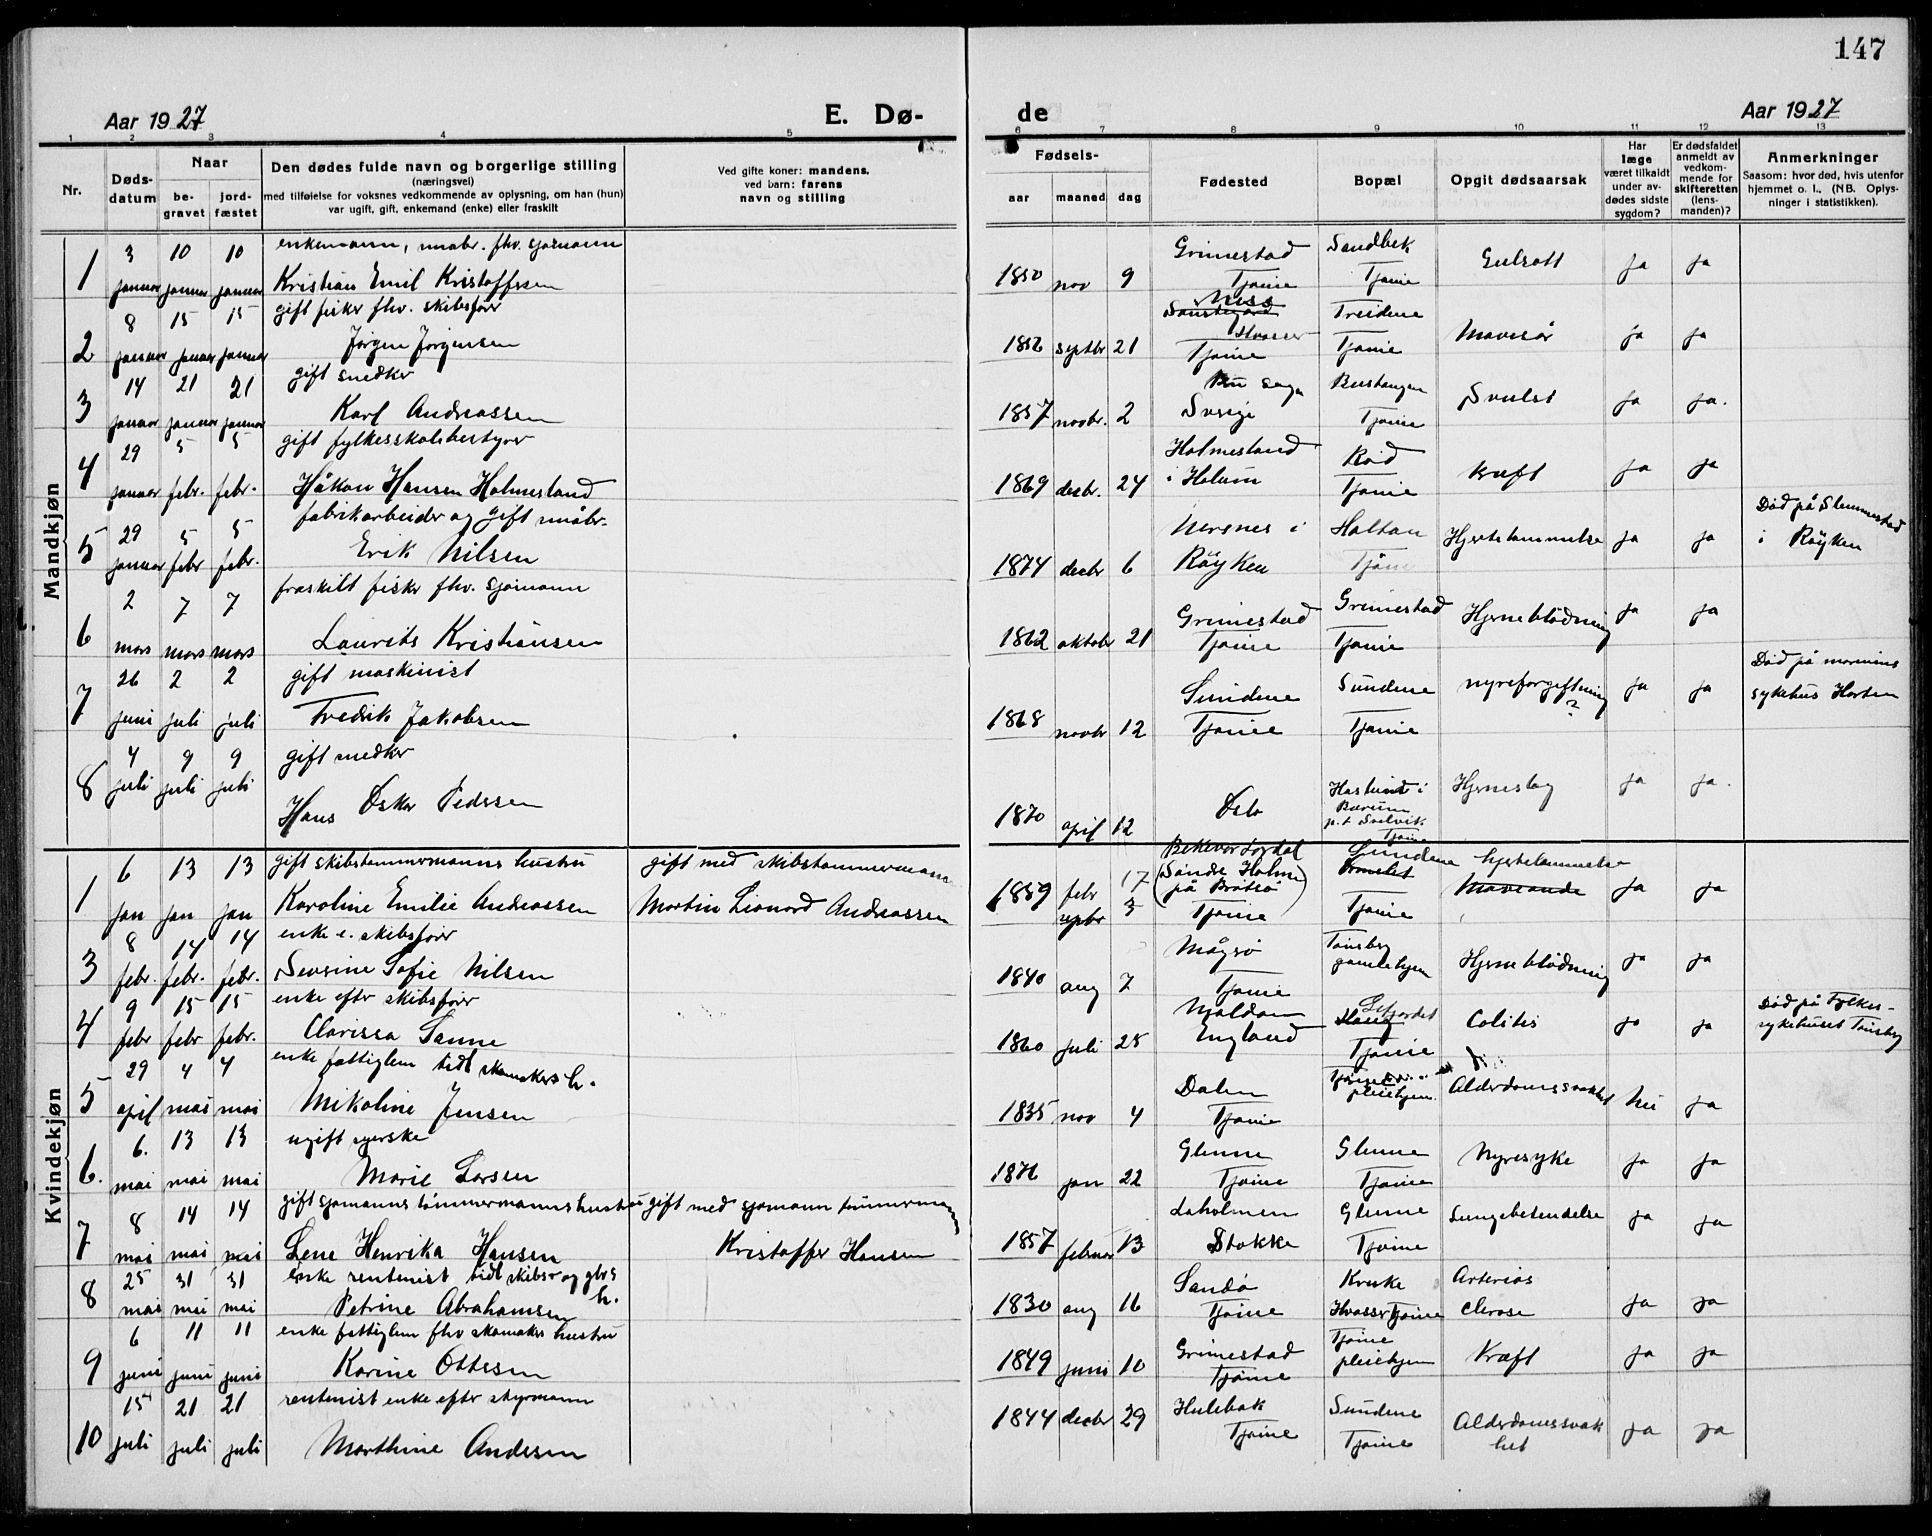 147
Aar 1927 E. Dø- de Aar 1927
1 2 3 4 5 6 7 8 9 10 11 12 13
Nr. Dødsdatum Naar begravet jordfæstet
Den dødes fulde navn og borgerlige stilling
(næringsvei)
med tilføielse for voksnes vedkommende av oplysning, om han (hun)
var ugift, gift, enkemand (enke) eller fraskilt
Ved gifte koner: mandens,
ved barn: farens
navn og stilling
Fødsels- aar maaned dag
Fødested
Bopæl
Opgit dødsaarsak
Har læge været tilkaldt under avdødes sidste sygdom?
Er dødsfaldet anmeldt av vedkommende for skifteretten (lensmanden)?
Anmerkninger
Saasom: hvor død, hvis utenfor hjemmet o. l., (NB. Oplysninger i statistikken).
Mandkjøn
1 3 januar 10 januar 10 januar enkemann, fhv. sjømann
Kristian Emil Kristoffersen 1850 nov 9 Grimestad Tjøme Sandbek Tjøme Gulsott ja ja
2 8 januar 15 januar 15 januar gift fisker fhv. skibsfører
Jørgen Jørgensen 1856 septbr 21 Hvasser Tjøme Treidene Tjøme Mavesår ja ja
3 14 januar 21 januar 21 januar gift snedker
Karl Andreassen 1857 novbr. 2 Sverige Bustangen Tjøme Svulst ja ja.
4 29 januar 5 febr. 5 febr. gift fylkesskolebestyrer
Håkon Hansen Holmesland 1869 decbr. 24 Holmesland i Holum Rød Tjøme kræft ja ja
5 29 januar 5 febr 5 febr. fabrikarbeider og gift
Erik Nilsen 1874 decbr 6 Nersnes i Røyken Holtan Tjøme Hjertelammelse ja ja Død på Slemmestad i Røyken
6 2 mars 7 mars 7 mars fraskilt fisker fhv. sjømann
Laurits Kristiansen 1862 oktobr 21 Grimestad Tjøme Grimestad Tjøme Hjerneblødning ja ja
7 26 juni 2 juli 2 juli gift maskinist
Fredrik Jakobsen 1868 novbr 12 Sundene Tjøme Sundene Tjøme nyreforgiftning? ja ja Død på marinens sykehus Horten
8 4 juli 9 juli 9 juli gift snedker
Hans Oskar Pedersen 1870 april 12 Oslo Haslund i Bærum p.t Solvik Tjøme Hjerneslag ja ja.
Kvindekjøn
1 6 jan 13 jan 13 jan gift skibstømmermanns hustru gift med skibstømmermann
Karoline Emilie Andreassen Martin Leonard Andreassen 1859 febr 17 septbr 3 (Søndre Holme på Brøtsø) Tjøme Sundene Tjøme hjertelammelse ja ja
3 8 febr. 14 febr. 14 febr. enke e. skibsfører
Severine Sofie Nilsen 1840 aug 7 Mågerø Tjøme Tønsberg gamlehjem Hjerneblødning ja ja
4 9 febr 15 febr 15 febr. enke efter skibsfører
Clarissa Sanne 1860 juli 25 Maldon England Tjøme Colitis ja ja Død på Fylkessykehuset Tønsberg
5 29 april 4 mai 4 mai enke fattiglem tidl skomakers h.
Nikoline Jensen 1835 nov 4 Dalen Tjøme Tjøme pleiehjem Alderdomssvakhet nei ja
6. 6. mai 13 mai 13 mai ugift syerske
Marie Larsen 1876 jan 22 Glenne Tjøme Glenne Tjøme Nyresyke ja ja
7 8 mai 14 mai 14 mai gift sjømanns tømmermanns hustru gift med sjømann tømmermann
Lene Henrika Hansen Kristoffer Hansen 1857 februar 13 Laholmen Stokke Glenne Tjøme Lungebetendelse ja ja
8 25 mai 31 mai 31 mai enke rentenist tidl skibsr og gbrs h.
Petrine Abrahamsen 1830 aug 16 Sandø Tjøme Kruke Hvasser Tjøme Arteriosclerose ja ja
9 6 juni 11 juni 11 juni enke fattiglem fhv skomakers hustru
Karine Ottesen 1849 juni 10 Grimestad Tjøme Tjøme pleiehjem Kræft ja ja
10 15 juli 21 juli 21 juli rentenist enke efter styrmann
Marthine Andersen 1844 decbr 29 Hulebak Tjøme Sundene Tjøme Alderdomssvakhet ja ja